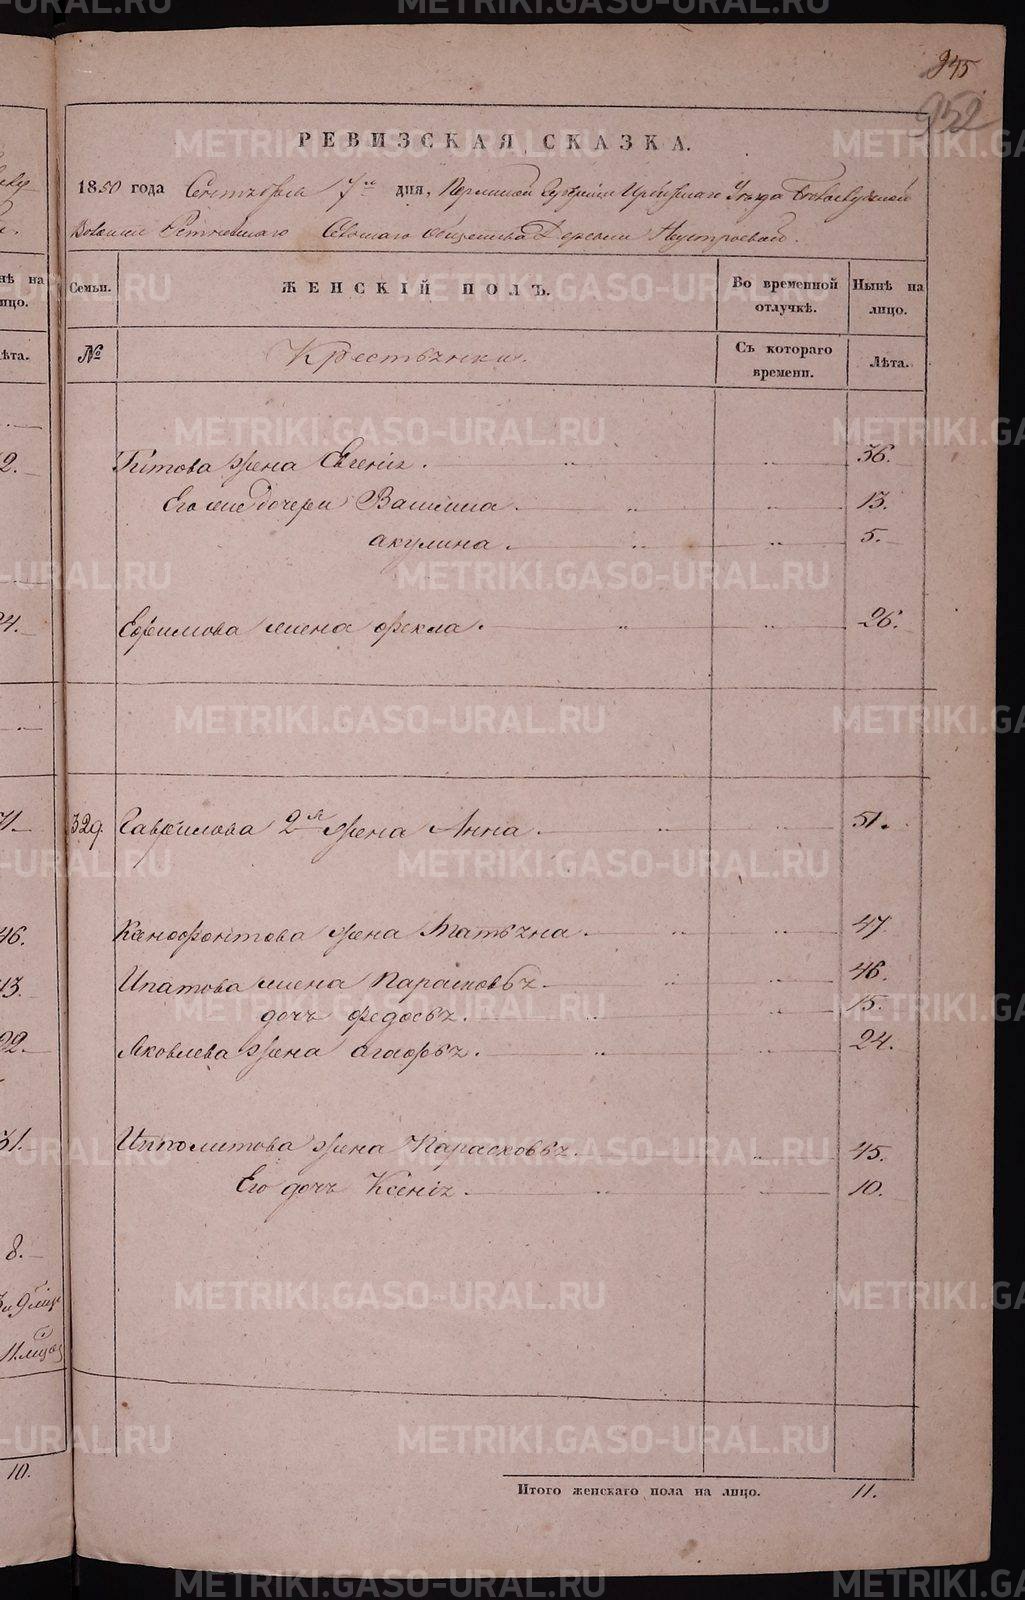 945
952
РЕВИЗСКАЯ СКАЗКА.
1850 года Сентября 7го дня, Пермской Губернии Ирбитскаго Уезда
Волости Сельскаго общества Деревни
нѣ на
ицо.
Семьи.
ЖЕНСКІЙ ПОЛЪ.
Во временной
отлучкѣ.
Нынѣ на
лицо.
ѣта.
№
Крестьянки.
Съ котораго
времени.
Лѣта.
2.
Титова жена Евгенія. 36.
Его же дочери 13.
акулина. 5.
24.
Ефимова жена фекла. 26.
71.
329. Гаврилова 2я жена Анна. 51.
46.
Ксенофонтова жена Татьяна. 47
13.
Ипатова жена Парасковья. 46.
дочь федосья. 15.
22.
Яковлева жена агафья. 24.
31.
Ипполитова жена Парасковья. 45.
Его дочь Ксенія. 10.
8.
10.
Итого женскаго пола на лицо. 11.
METRIKI.GASO-URAL.RU